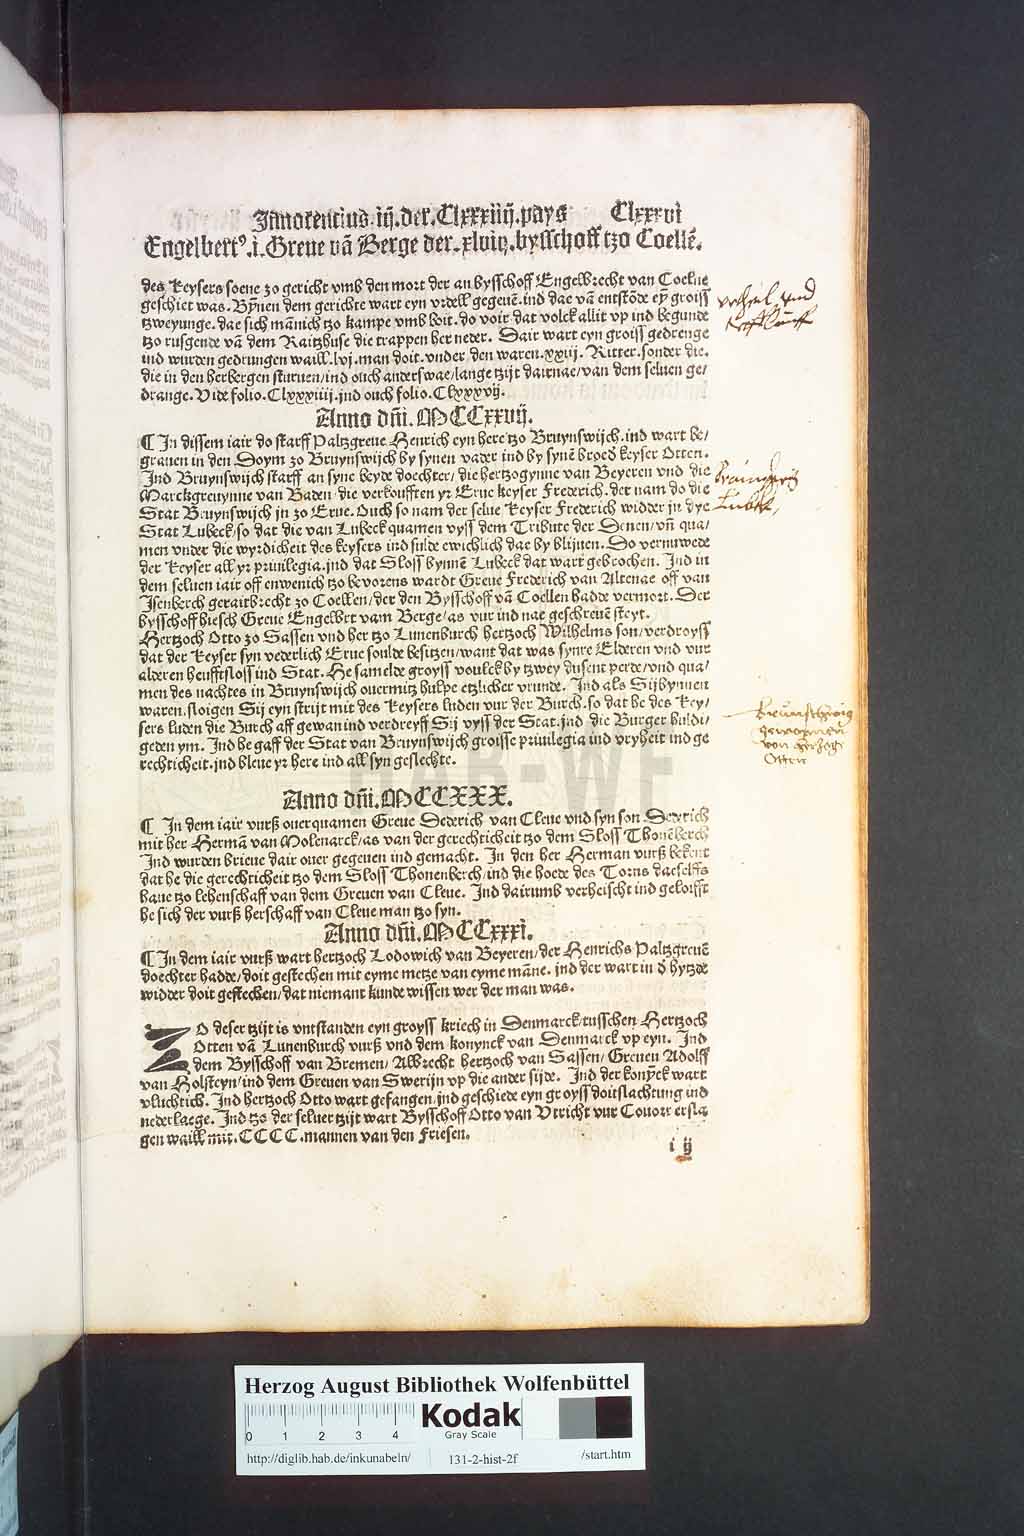 Innocencius.iij.der.Clxxxiiij.pays Clxxxvi
Engelbertꝰ.i.Greue vā Berge der.xlviij.bysschoff tzo Coellē.
des keysers soene zo gericht vmb den mort der an bysschoff Engelbrecht van Coelne
geschiet was. Bynen dem gerichte wart eyn vrdell gegeuē.ind dae vā entstōde eȳ groiss
tzweyunge.dae sich mānich tzo kampe vmb boit.do voir dat volck allit vp ind begunde
tzo rusgende vā dem Raitzhuse die trappen her neder. Dair wart eyn groiss gedrenge
ind wurden gedrungen waill.lvj.man doit.vnder den waren.xxiij. Ritter.sonder die.
die in den herbergen sturuen/ind ouch anderswae/lange tzijt dairnae/van dem seluen ge/
drange. Vide folio.Clxxxiiij.ind ouch folio.Clxxxvij.
Anno dñi.MCCxxvij.
¶ In dissem iair do starff Paltzgreue Henrich eyn here tzo Bruynswijch.ind wart be/
grauen in den Doym zo Bruynswijch by synen vader ind by synē broed keyser Otten.
Ind Bruynswijch starff an syne beyde doechter/die hertzogynne van Beyeren vnd die
Marckgreuynne van Baden/die verkoufften yr Erue keyser Frederich.der nam do die
Stat Bruynswijch in zo Erue.Ouch so nam der selue keyser Frederich widder in dye
Stat Lubeck/so dat die van Lubeck quamen vyss dem Tribute der Denen/vñ qua/
men vnder die wyrdicheit des keysers ind sulde ewichlich dae by blijuen. Do vernuwede
der keyser all yr priuilegia.ind dat Sloss bynnē Lubeck dat wart gebrochen. Ind in
dem seluen iair off enwenich tzo bevorens wardt Greue Frederich van Altenae off van
Isenberch geraitbrecht zo Coellen/der den Bysschoff vā Coellen hadde vermort. Der
bysschoff hiesch Greue Engelbrt vam Berge/as vur ind nae geschreuē steyt.
Hertzoch Otto zo Sassen vnd her tzo Lunenburch hertzoch Wilhelms son/verdroyss
dat der keyser syn vederlich Erue soulde besitzen/want dat was synre Elderen vnd vur
alderen heufftsloss ind Stat. He samelde groyss voulck by tzwey dusent perde/vnd qua/
men des nachtes in Bruynswijch ouermitz hulpe etzlicher vrunde. Ind als Sij bynnen
waren.sloigen Sij eyn strijt mit des keysers luden vur der Burch.so dat he des key/
sers luden die Burch aff gewan ind verdreyff Sij vyss der Stat.ind die Burger huldi/
geden ym. Ind he gaff der Stat van Bruynswijch groisse priuilegia ind vryheit ind ge
rechticheit.ind bleue yr here ind all syn geslechte.
Anno dñi.MCCXXX.
¶ In dem iair vurß ouerquamen Greue Dederich van Cleue vnd syn son Dederich
mit her Hermā van Molenarck/as van der gerechticheit tzo dem Sloss Thonēberch
Ind wurden brieue dair ouer gegeuen ind gemacht. In den her Herman vurß bekent
dat he die gerechticheit tzo dem Sloss Thonenberch/ind die hoede des Torns daeselffs
haue tzo lehenschaff van dem Greuen van Cleue. Ind dairumb verheischt ind geloifft
he sich der vurß herschaff van Cleue man tzo syn.
Anno dñi.MCCxxxi.
¶ In dem iair vurß wart hertzoch Lodowich van Beyeren/der Henrichs Paltzgreuē
doechter hadde/doit gestechen mit eyme metze van eyme māne. ind der wart in d hytzde
widder doit gestechen/dat niemant kunde wissen wer der man was.
ZO deser tzijt is vntstanden eyn groyss kriech in Denmarck/tusschen Hertzoch
Otten vā Lunenburch vurß vnd dem konynck van Denmarck vp eyn. Ind
dem Bysschoff van Bremen/Albrecht hertzoch van Sassen/Greuen Adolff
van Holsteyn/ind dem Greuen van Swerijn vp die ander sijde. Ind der konyck wart
vluchtich. Ind hertzoch Otto wart gefangen/ind geschiede eyn groyss doitslachtung ind
nederlaege. Ind tzo der seluer tzijt wart Bysschoff Otto van Vtricht vur Couorr ersla
gen waill mit.CCCC.mannen van den Friesen.
i ij
Braunschweig
gewonnen
von Herzog
Otten
HAB-WF
Herzog August Bibliothek Wolfenbüttel
0 1 2 3 4
Kodak
Gray Scale
http://diglib.hab.de/inkunabeln/ 131-2-hist-2f /start.htm